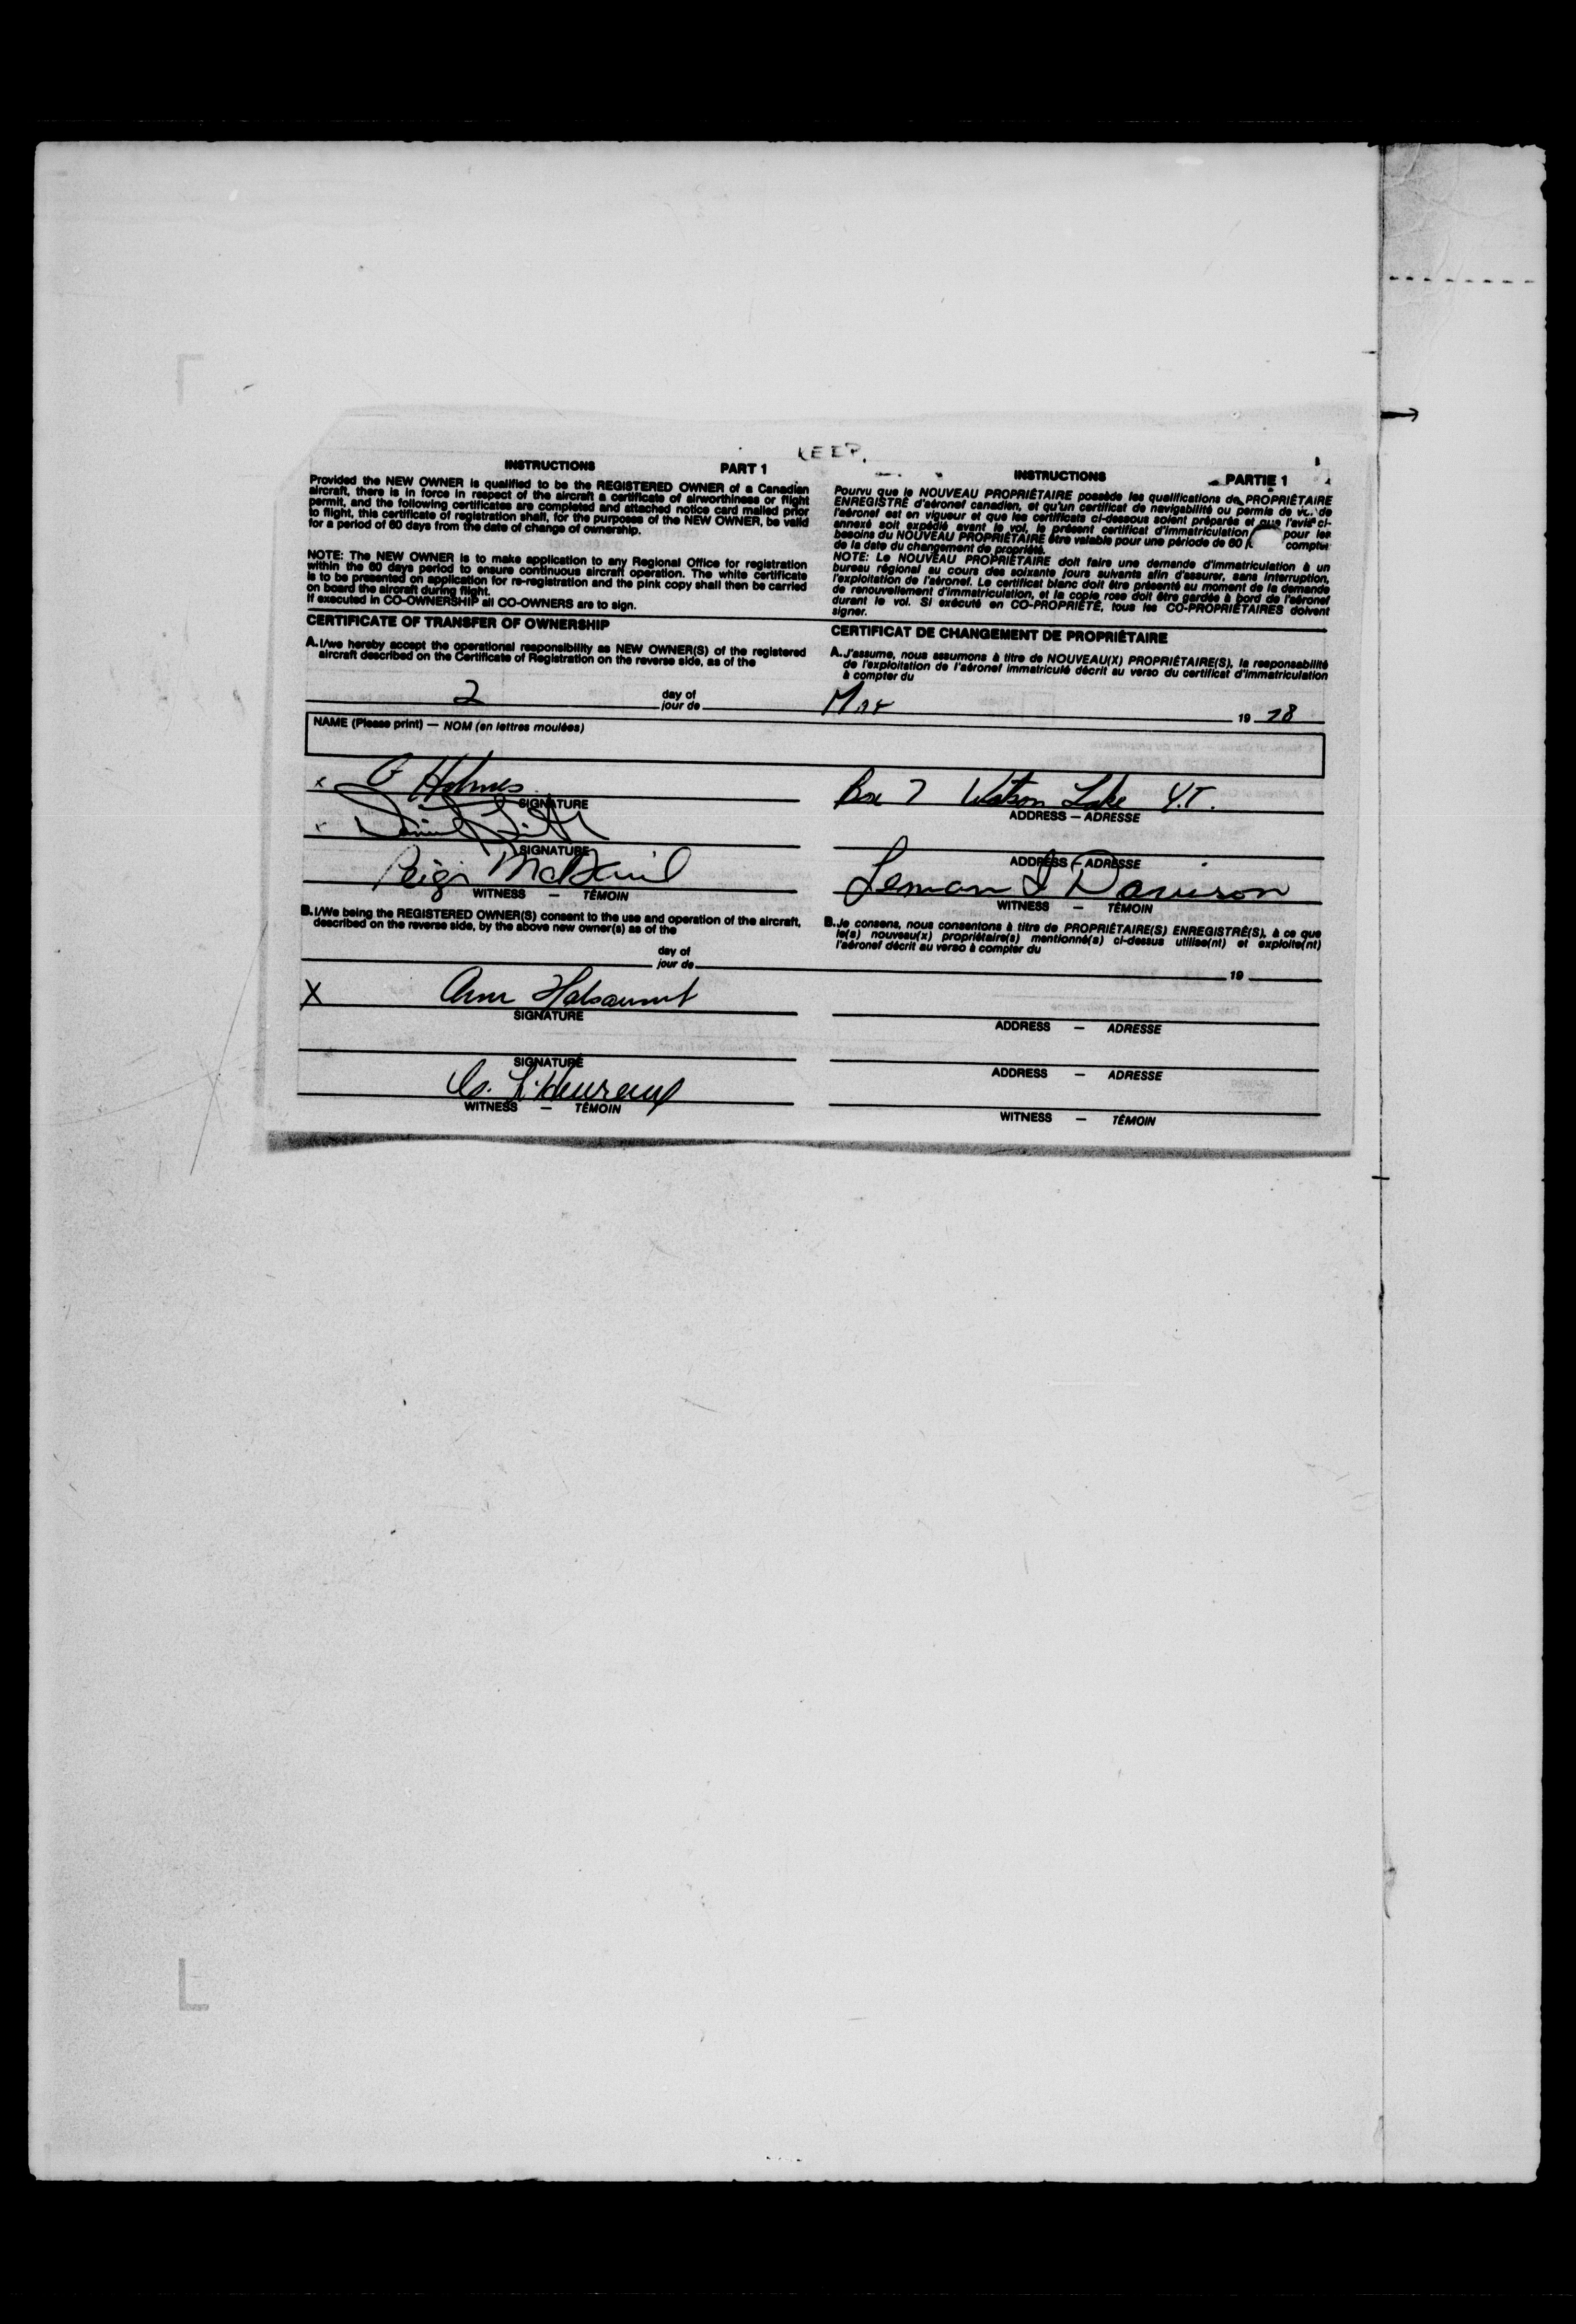 KEEP.
INSTRUCTIONS PART 1
Provided the NEW OWNER is qualified to be the REGISTERED OWNER of a Canadian
aircraft, there is in force in respect of the aircraft a certificate of airworthiness or flight
permit, and the following certificates are completed and attached notice card mailed prior
to flight, this certificate of registration shall, for the purposes of the NEW OWNER, be valid
for a period of 60 days from the date of change of ownership.
NOTE: The NEW OWNER is to make application to any Regional Office for registration
within the 60 days period to ensure continuous aircraft operation. The white certificate
is to be presented on application for re-registration and the pink copy shall then be carried
on board the aircraft during flight.
If executed in CO-OWNERSHIP all CO-OWNERS are to sign.
CERTIFICATE OF TRANSFER OF OWNERSHIP
A. I/we hereby accept the operational responsibility as NEW OWNER(S) of the registered
aircraft described on the Certificate of Registration on the reverse side, as of the
INSTRUCTIONS PARTIE 1
Pourvu que le NOUVEAU PROPRIÉTAIRE possède les qualifications de PROPRIÉTAIRE
ENREGISTRÉ d'aéronef canadien, et qu'un certificat de navigabilité ou permis de de
l'aéronef est en vigueur et que les certificats ci-dessous soient préparés et que l'avis ci-
annexé soit expédié avant le vol, le présent certificat d'immatriculation pour les
besoins du NOUVEAU PROPRIÉTAIRE être valable pour une période de 60 compter
de la date du changement de propriété.
NOTE: Le NOUVEAU PROPRIÉTAIRE doit faire une demande d'immatriculation à un
bureau régional au cours des soixante jours suivants afin d'assurer, sans interruption,
l'exploitation de l'aéronef. Le certificat blanc doit être présenté au moment de la demande
de renouvellement d'immatriculation, et la copie rose doit être gardée à bord de l'aéronef
durant le vol. Si exécuté en CO-PROPRIÉTÉ, tous les CO-PROPRIÉTAIRES doivent
signer.
CERTIFICAT DE CHANGEMENT DE PROPRIÉTAIRE
A. J'assume, nous assumons à titre de NOUVEAU(X) PROPRIÉTAIRE(S), la responsabilité
de l'exploitation de l'aéronef immatriculé décrit au verso du certificat d'immatriculation
à compter du
2 day of Mar 19 78
jour de
NAME (Please print) — NOM (en lettres moulées)
x G Holmes Box 7 Watson Lake Y.T.
SIGNATURE ADDRESS — ADRESSE
SIGNATURE ADDRESS — ADRESSE
Leman Davison
WITNESS — TÉMOIN WITNESS — TÉMOIN
B. I/We being the REGISTERED OWNER(S) consent to the use and operation of the aircraft,
described on the reverse side, by the above new owner(s) as of the
B. Je consens, nous consentons à titre de PROPRIÉTAIRE(S) ENREGISTRÉ(S), à ce que
le(s) nouveau(x) propriétaire(s) mentionné(s) ci-dessus utilise(nt) et exploite(nt)
l'aéronef décrit au verso à compter du
day of 19
jour de
X Ann
SIGNATURE ADDRESS — ADRESSE
SIGNATURE ADDRESS — ADRESSE
L'Heureux
WITNESS — TÉMOIN WITNESS — TÉMOIN